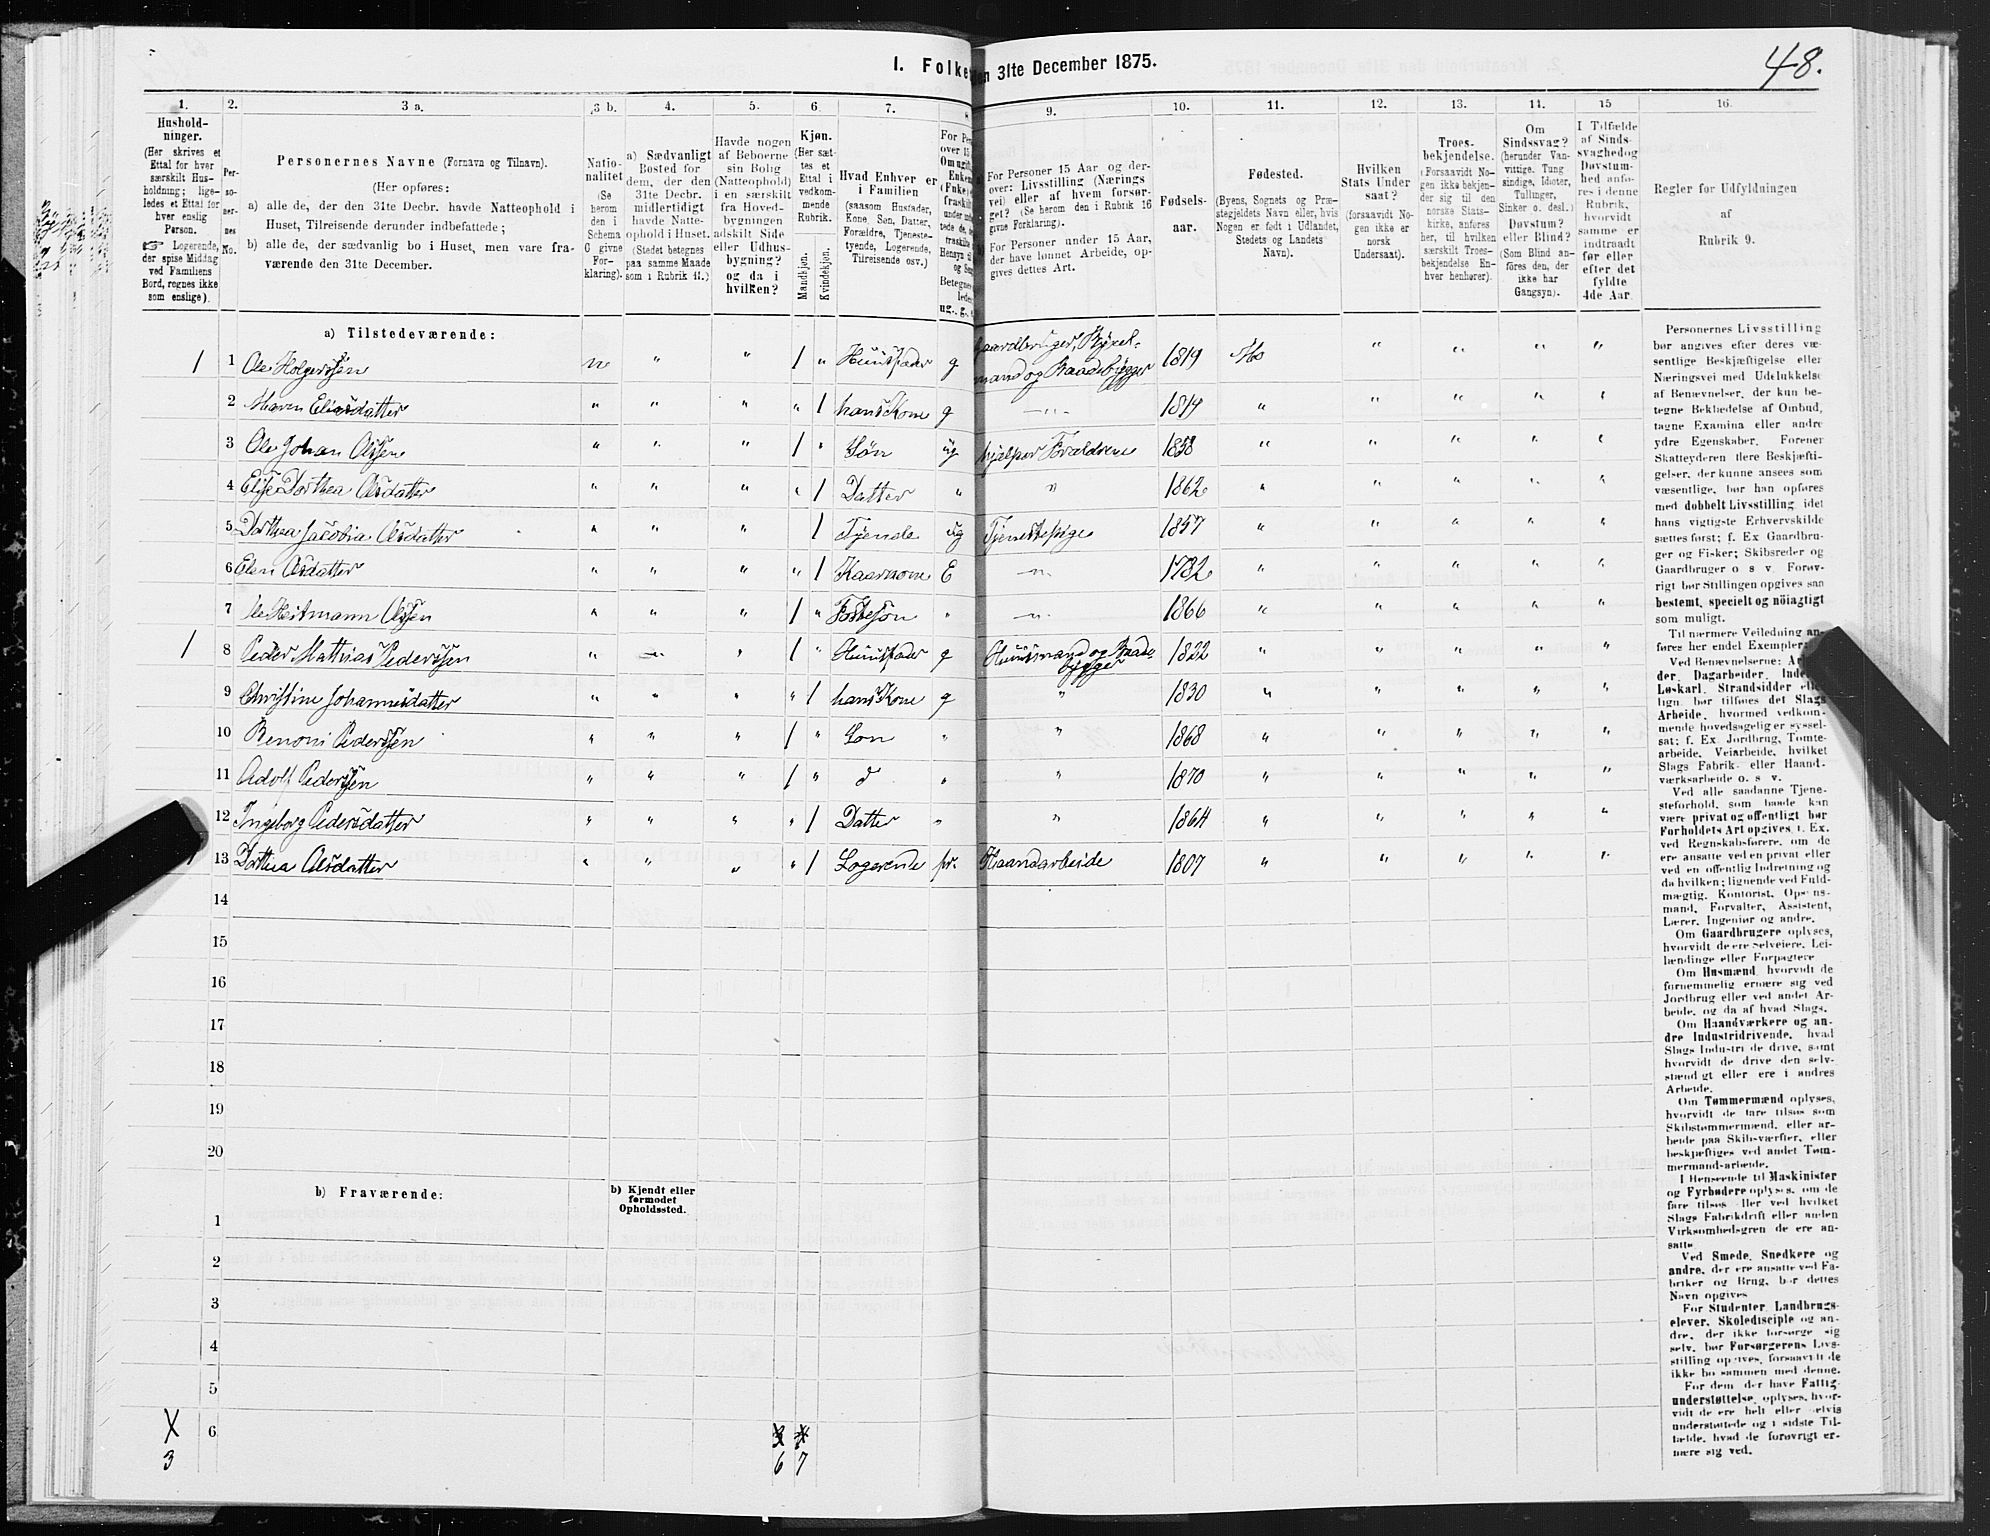 1. Folke
en 31te December 1875.
48.
1. 2. 3 a. 3 b. 4. 5. 6. 7. 8 9. 10. 11. 12. 13. 14. 15 16.
Hushold-
ninger.
(Her skrives et
Ettal for hver
særskilt Hus-
holdning; lige-
ledes et Ettal for
hver enslig
Person.
☞ Logerende,
der spise Middag
ved Familiens
Bord, regnes ikke
som enslige).
Per-
so-
ner-
nes
No.
Personernes Navne (Fornavn og Tilnavn).
(Her opføres:
a) alle de, der den 31te Decbr. havde Natteophold i
Huset, Tilreisende derunder indbefattede;
b) alle de, der sædvanlig bo i Huset, men vare fra-
værende den 31te December.
Natio-
nalitet
(Se
herom
den i
Schema
C givne
For-
klaring).
a) Sædvanligt
Bosted for
dem, der den
31te Decbr.
midlertidigt
havde Natte-
ophold i Huset.
(Stedet betegnes
paa samme Maade
som i Rubrik 11.)
Havde nogen
af Beboerne
sin Bolig
(Natteophold)
i en særskilt
fra Hoved-
bygningen
adskilt Side
eller Udhus-
bygning?
og da i
hvilken?
Kjøn.
(Her sæt-
tes et
Ettal i
vedkom-
mende
Rubrik.
Mandkjøn.
Kvindekjøn.
Hvad Enhver er
i Familien
(saasom Husfader,
Kone, Søn, Datter,
Forældre, Tjeneste-
tyende, Logerende,
Tilreisende osv.)
For Per
over 15
Om ugift
Enken
(Fnke)
fraskilt
ug., g., e
For Personer 15 Aar og der-
over: Livsstilling (Nærings
vei) eller af hvem forsør-
get? (Se herom den i Rubrik 16
givne Forklaring).
For Personer under 15 Aar,
der have lønnet Arbeide, op-
gives dettes Art.
Fødsels-
aar.
Fødested.
(Byens, Sognets og Præ-
stegjeldets Navn eller, hvis
Nogen er født i Udlandet,
Stedets og Landets
Navn).
Hvilken
Stats Under
saat?
(forsaavidt No-
gen ikke er
norsk
Undersaat).
Troes-
bekjendelse.
(Forsaavidt No-
gen ikke bekjen-
der sig til den
norske Stats-
kirke, anføres
her, til hvilken
særskilt Troes-
bekjendelse En-
hver henhører).
Om
Sindssvag?
(herunder Van-
vittige. Tung
sindige, Idioter,
Tullinger,
Sinker o. desl.)
Døvstum?
eller Blind?
(Som Blind an-
føres den, der
ikke har
Gangsyn).
I Tilfælde
af Sinds-
svaghed og
Døvstum-
hed anfø-
res i denne
Rubrik,
hvorvidt
samme er
indtraadt
før eller
efter det
fyldte
4de Aar.
Regler for Udfyldningen
af
Rubrik 9.
a) Tilstedeværende:
1 1 Ole Holgerssen n " " 1 " Huusfader g Gaardbruger, Styrel-
mand og Baadebygger 1819 Mo " " " "
2 Maren Eliasdatter " " " " 1 hans Kone g —"— 1819 " " " " "
3 Ole Johan Olssen " " " 1 " Søn ug hjelper Forældrene 1858 " " " " "
4 Elise Dorthea Olsdatter " " " " 1 Datter " " 1862 " " " " "
5 Dorthea Jacobia Olsdatter " " " 1 Tjende ug Tjenestepige 1857 " " " " "
6 Elen Olsdatter " " " " 1 Kaarkone E —"— 1782 " " " " "
7 Ole Heitmann Olssen " " " 1 " Fostesøn " —"— 1866 " " " " "
1 8 Peder Mathias Pederssen " — " 1 " Huusfader g Huusmand og Baade-
bygger 1822 " " " " "
9 Christine Johannesdatter " " " " 1 hans Kone g " 1830 " " " " "
10 Benoni Pederssen " " " 1 " Son " " 1868 " " " " "
11 Adolf Pederssen " " " 1 " d " " 1870 " " " " "
12 Ingeborg Pedersdatter " " " " 1 Datter " " 1864 " " " " "
13 Dorthea Olsdatter " " " " 1 Logerende fr. Haandarbeide 1807 " " " " "
14
15
16
17
18
19
20
b) Fraværende:
b) Kjendt eller
formodet
Opholdssted.
1
2
3
4
5
6
3 6 7
Personernes Livsstilling
bør angives efter deres væ-
sentlige Beskjæftigelse eller
Næringsvei med Udelukkelse
af Benævnelser, der kun be-
tegne Beklædelse af Ombud,
tagne Examina eller andre
ydre Egenskaber. Forener
Skatteyderen flere Beskjæfti-
gelser, der kunne ansees som
væsentlige, bør han opføres
med dobbelt Livsstilling, idet
hans vigtigste Erhvervskilde
sættes først; f. Ex Gaardbru-
ger og Fisker; Skibsreder og
Gaardbruger o s v. Forøv-
rigt bør Stillingen opgives saa
bestemt, specielt og nøiagtigt
som muligt.
Til nærmere Veiledning an-
føres her endel Exempler:
Ved Benævnelserne: Ar
der, Dagarbeider, Inder
Løskarl, Strandsidder el
lign. bør tilføies det Slags
Arbeide, hvormed vedkom-
mende hovedsagelig er syssel-
sat; f. Ex. Jordbrug, Tømte-
arbeide, Veiarbeide, hvilket
Slags Fabrik- eller Haand-
værksarbeide o. s. v.
Ved alle saadanne Tjene-
steforhold, som baade kan
være privat og offentligt, bør
Forholdets Art opgives, t. Ex.
ved Regnskabsførere, om de
ere ansatte ved en privat eller
ved en offentlig Indretning og
da hvilken; lignende ved Fuld-
mægtig, Kontorist, Opsyns-
mand, Forvalter, Assistent,
Lærer, Ingeniør og andre.
Om Gaardbrugere oplyses,
hvorvidt de ere Selveiere, Lei-
lændinge eller Forpagtere.
Om Husmænd, hvorvidt de
fornemmelig ernære sig ved
Jordbrug eller ved andet Ar-
beide, og da af hvad Slags.
Om Haandværkere og an-
dre Industridrivende, hvad
Slags Industri de drive, samt
hvorvidt de drive den selv-
stændigt eller ere i andres
Arbeide.
Om Tømmermænd oplyses,
hvorvidt de fare tilsøs som
Skibstømmermænd, eller ar-
beide paa Skibsværfter, eller
beskjæftiges ved andet Tøm-
mermand-arbeide.
I Henseende til Maskinister
og Fyrbødere oplyses, om de
fare tilsøs eller ved hvilket
Slags Fabrikdrift eller anden
Virksomhedsgren de ere an-
satte
Ved Smede, Snedkere og
andre, der ere ansatte ved Fa-
briker og Brug, bør dettes
Navn opgives
For Studenter, Landbrugs-
elever, Skoledisciple og an-
dre, der ikke forsørge sig
selv, bør Forsørgerens Livs-
stilling opgives, forsaavidt de
ikke bo sammen med denne.
For dem, der have Fattig-
understøttelse, oplyses, hvor-
vidt de ere helt eller delvis
understøttede og i sidste Til-
fælde, hvad de forøvrigt er-
nære sig ved.